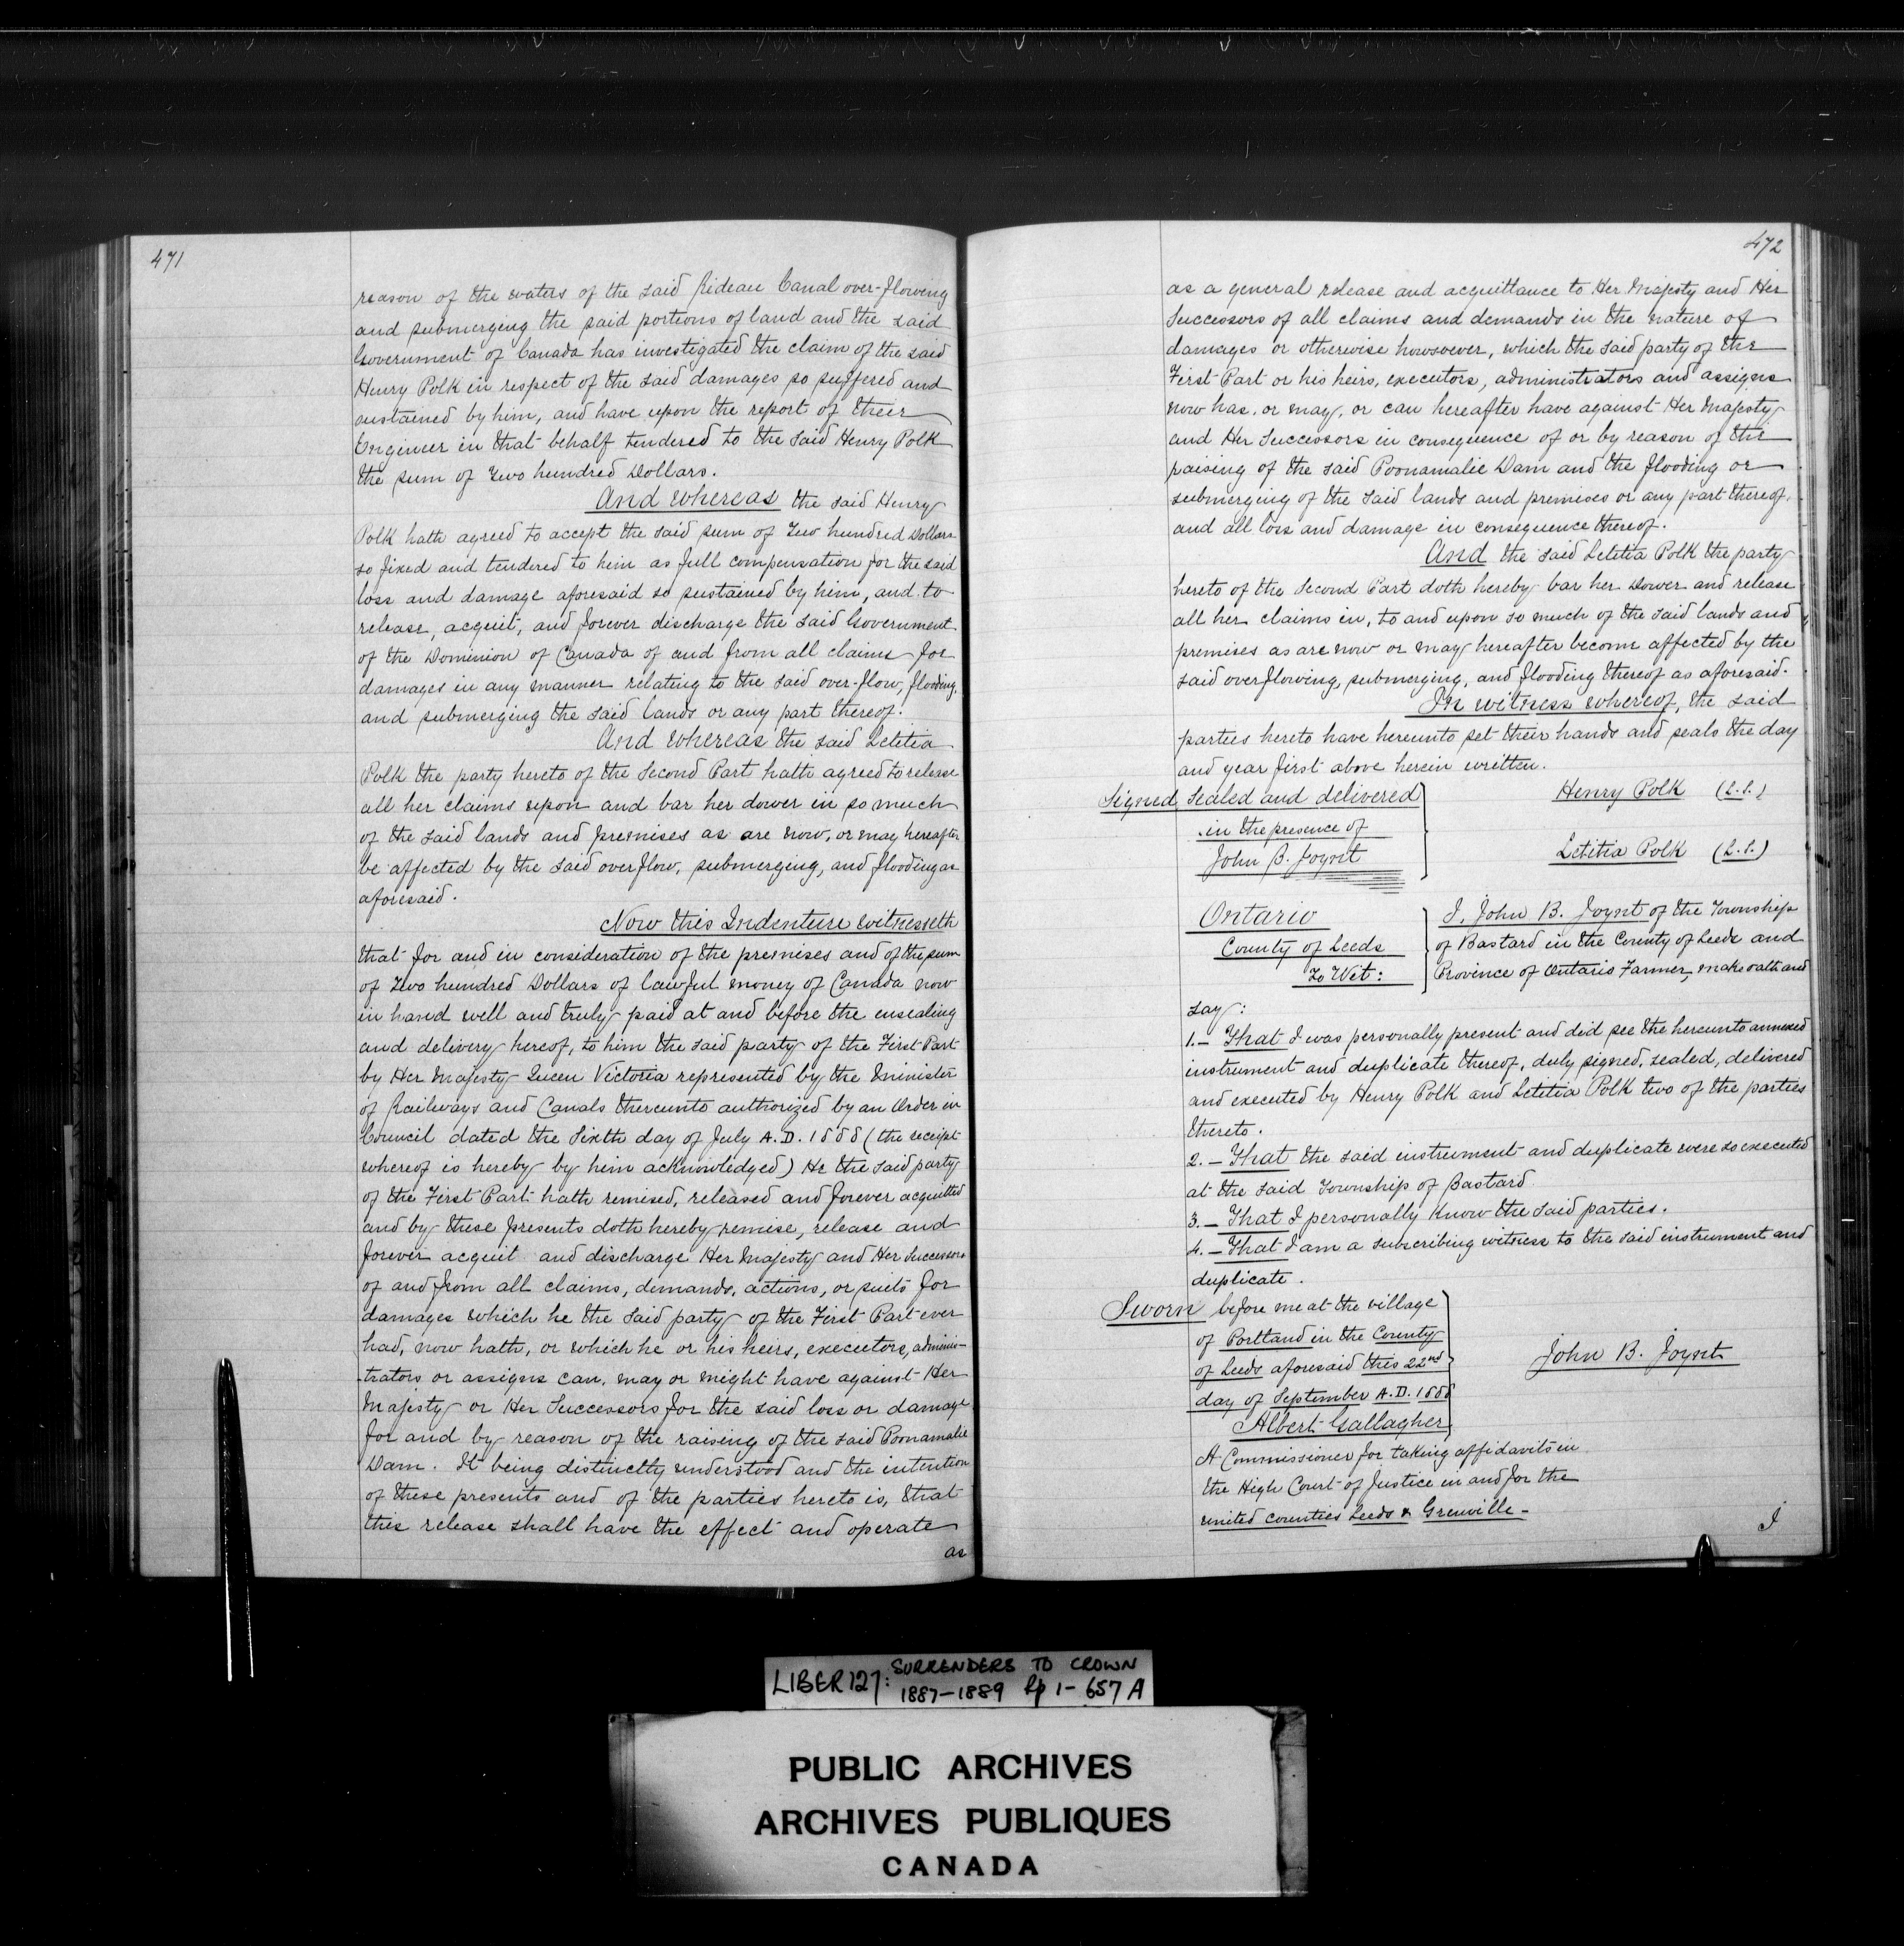 471
reason of the waters of the said Rideau Canal over-flowing
and submerging the said portions of land and the said
Government of Canada has investigated the claim of the said
Henry Polk in respect of the said damages so suffered and
sustained by him, and have upon the report of their
Engineer in that behalf tendered to the said Henry Polk
the sum of Two hundred Dollars.
And Whereas the said Henry
Polk hath agreed to accept the said sum of Two hundred Dollars
so fixed and tendered to him as full compensation for the said
loss and damage aforesaid so sustained by him, and to
release, acquit, and forever discharge the said Government
of the Dominion of Canada of and from all claims for
damages in any manner relating to the said over-flow, flooding,
and submerging the said lands or any part thereof.
And Whereas the said Letitia
Polk the party hereto of the Second Part hath agreed to release
all her claims upon and bar her dower in so much
of the said lands and premises as are now, or may hereafter
be affected by the said overflow, submerging, and flooding as
aforesaid.
Now this Indenture witnesseth
that for and in consideration of the premises and of the sum
of Two hundred Dollars of lawful money of Canada now
in hand well and truly paid at and before the ensealing
and delivery hereof, to him the said party of the First Part
by Her Majesty Queen Victoria represented by the Minister
of Railways and Canals thereunto authorized by an Order in
Council dated the Sixth day of July A.D. 1888 (the receipt
whereof is hereby by him acknowledged) He the said party
of the First Part hath remised, released and forever acquitted
and by these presents doth hereby remise, release and
forever acquit and discharge Her Majesty and Her Successors
of and from all claims, demands, actions, or suits for
damages which he the said party of the First Part ever
had, now hath, or which he or his heirs, executors, adminis-
-trators or assigns can, may or might have against Her
Majesty or Her Successors for the said loss or damage
for and by reason of the raising of the said Poonamalie
Dam. It being distinctly understood and the intention
of these presents and of the parties hereto is, that
this release shall have the effect and operate
as
472
as a general release and acquittance to Her Majesty and Her
Successors of all claims and demands in the nature of
damages or otherwise howsoever, which the said party of the
First Part or his heirs, executors, administrators and assigns
now has, or may, or can hereafter have against Her Majesty
and Her Successors in consequence of or by reason of the
raising of the said Poonamalie Dam and the flooding or
submerging of the said lands and premises or any part thereof,
and all loss and damage in consequence thereof.
And the said Letitia Polk the party
hereto of the Second Part doth hereby bar her Dower and release
all her claims in, to and upon so much of the said lands and
premises as are now or may hereafter become affected by the
said overflowing, submerging, and flooding thereof as aforesaid.
In witness whereof, the said
parties hereto have hereunto set their hands and seals the day
and year first above herein written.
Signed, Sealed and delivered
in the presence of
John B. Joynt
Henry Polk (L.S.)
Letitia Polk (L.S.)
Ontario
County of Leeds
To Wit:
I, John B. Joynt of the Township
of Bastard in the County of Leeds and
Province of Ontario Farmer, make oath and
say:
1.— That I was personally present and did see the hereunto annexed
instrument and duplicate thereof, duly signed, sealed, delivered
and executed by Henry Polk and Letitia Polk two of the parties
thereto.
2.— That the said instrument and duplicate were so executed
at the said Township of Bastard.
3.— That I personally know the said parties.
4.— That I am a subscribing witness to the said instrument and
duplicate.
Sworn before me at the village
of Portland in the County
of Leeds aforesaid this 22nd
day of September A.D. 1888
John B. Joynt
Albert Gallagher
A Commissioner for taking affidavits in
the High Court of Justice in and for the
united counties Leeds & Grenville-
I
LIBER 127: SURRENDERS TO CROWN
1887-1889 pp 1-657A
PUBLIC ARCHIVES
ARCHIVES PUBLIQUES
CANADA